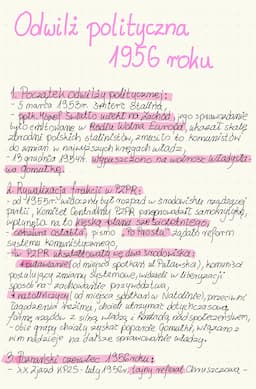 Odwilż polityczna
1956 roku
1. Początek odwilży politycznej:
- 5 marca 1953r. śmierć Stalina,
- płk. Józef Światło uciekł na Zachód, jego sprawozdanie
było emitowane w Radiu Wolna Europa, ukazał skalę
zbrodni polskich stalinistów, zmusiło to komunistów
do zmian w najwyższych kręgach władz,
- 13 grudnia 1954r. wypuszczono na wolność Władysła-
wa Gomułkę,
2. Rywalizacja frakcji w PZPR:
- od 1955r. widoczny był rozpad w środowisku rządzącej
partii, Komitet Centralny PZPR przeprowadził samokrytykę,
polegała na to klęska planu sześcioletniego,
- cenzura osłabła, pismo "Po Prostu" żądało reform
systemu komunistycznego,
- w PZPR ukształtowały się dwa środowiska:
puławianie (od miejsca spotkań ul. Puławska), komuniści
postulujący zmiany systemowe, widzieli w liberalizacji
sposób na zachowanie przywództwa,
natolińczycy (od miejsca spotkań w Natolinie), przeciwni
złagodzeniu reżimu, chcieli utrzymać dotychczasową
formę rządów z silną władzą i kontrolą nad społeczeństwem,
- obie grupy chciały zyskać poparcie Gomułki, wiązano z
nim nadzieje na dalsze sprawowanie władzy.
3. Poznański czerwiec 1956 roku:
- XX Zjazd KPZR - luty 1956r., tajny referat Chruszczowa -